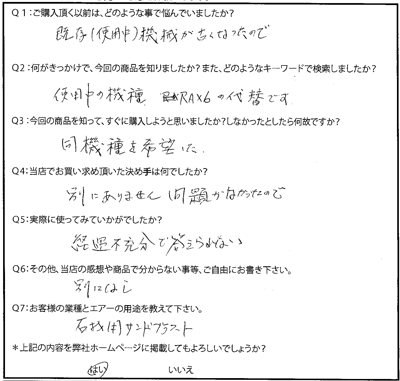 Q1：ご購入頂く以前は、どのような事で悩んでいましたか？
既存(使用中)機械が古くなったので
Q2：何がきっかけで、今回の商品を知りましたか？また、どのようなキーワードで検索しましたか？
使用中の機種 RAX6の代替です
Q3：今回の商品を知って、すぐに購入しようと思いましたか？しなかったとしたら何故ですか？
同機種を希望した
Q4：当店でお買い求め頂いた決め手は何でしたか？
別にありません 問題がなかったので
Q5：実際に使ってみていかがでしたか？
経過不充分で答えられない
Q6：その他、当店の感想や商品で分からない事等、ご自由にお書き下さい。
別になし
Q7：お客様の業種とエアーの用途を教えて下さい。
石材用サンドブラスト
＊上記の内容を弊社ホームページに掲載してもよろしいでしょうか？
はい いいえ